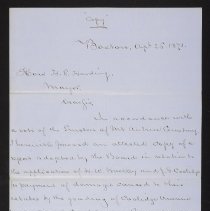 "Copy"
Boston, Sept 25 1871.
Hon. H. P. Harding,
Mayor,
Madfis
In accordance with
a vote of the Trustees of Mt Auburn Cemetery
I herewith forward an attested copy of a
report adopted by the Board in relation to
the application of
payment of damage caused to their
estates by the grading of Coolidge Avenue